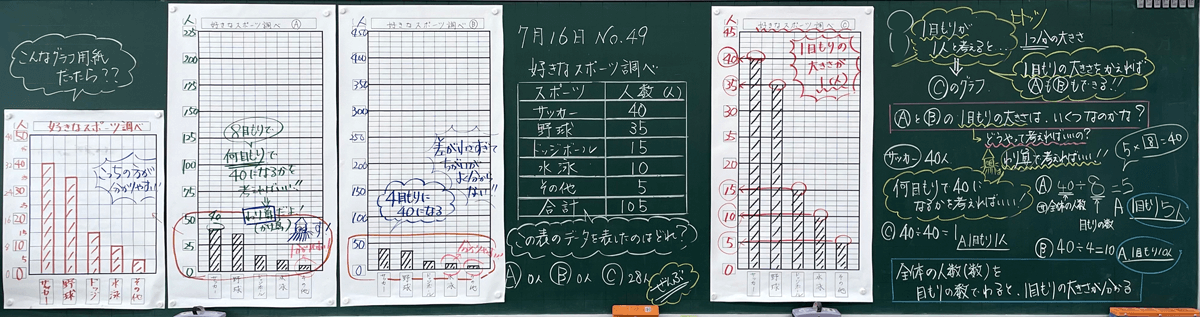 こんなグラフ用紙
だったら??
人
好きなスポーツ調べ
50
40
30
20
10
0
こっちの方が
分かりやすい!!
サッカー
野球
ドッジ
水泳
その他
好きなスポーツ調べ Ⓐ
人
225
200
175
150
125
100
75
50
25
0
8目もりで
何目もりで
40になるかを
考えればいい!!
わり算だよ!
40
サッカー
野球
水泳
その他
好きなスポーツ調べ Ⓑ
人
450
400
350
300
250
200
150
100
50
0
差が小さすぎて
ちがいが
よく分から
ない!!
4目もりに
40になる
サッカー
野球
水泳
その他
7月16日 No.49
好きなスポーツ調べ
スポーツ 人数(人)
サッカー 40
野球 35
ドッジボール 15
水泳 10
その他 5
合計 105
の表のデータを表したのはどれ?
Ⓐ0人 Ⓑ0人 Ⓒ28人
ぜんぶ
好きなスポーツ調べ Ⓒ
人
45
40
35
30
25
20
15
10
5
0
1目もりの
大きさが
1(人)
サッカー
野球
水泳
その他
1目もりが
1人と考えると…
Ⓒのグラフ
1つ分の大きさ
1目もりの大きさをかえれば
ⒶもⒷもできる!!
ⒶとⒷの1目もりの大きさは、いくつなのかな?
どうやって考えればいいの?
わり算で考えればいい!!
5×8=40
サッカー 40人
何目もりで40に
なるかを考えればいい!
Ⓐ 40÷8=5
全体の人数
目もりの数
A 1目もり5人
Ⓒ 40÷40=1
A 1目もり1人
Ⓑ 40÷4=10 A 1目もり10人
全体の人数(数)を
目もりの数でわると、1目もりの大きさが分かる